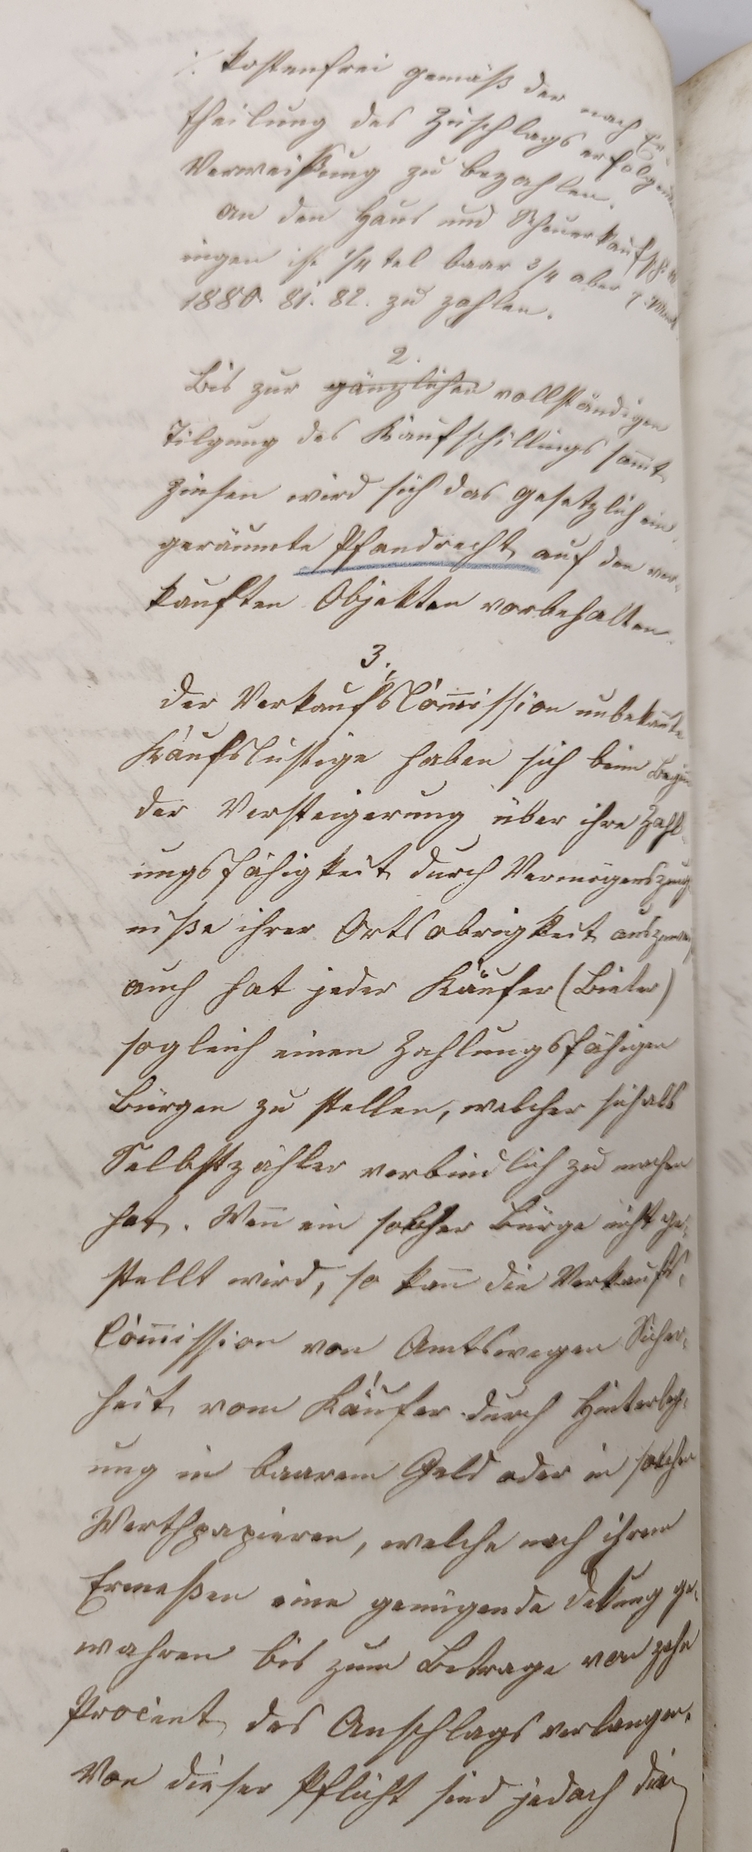 kostenfrei gemäß der nach Er-
theilung des Zuschlags erfolgenden
Verweisung zu bezahlen.
An den Haus und Scheuer Kauf
ingen ist 1/4 tel baar 3/4 aber
1880. 81. 82. zu zahlen.
2.
Bis zur gänzlichen vollständigen
Tilgung des Kaufschillings sammt
Zinsen wird sich das gesetzlich ein-
geräumte Pfandrecht auf den ver-
kauften Objekten vorbehalten.
3.
Der Verkaufs Commission unbekannte
Kaufslustige haben sich beim Beginn
der Versteigerung über ihre Zahl-
ungsfähigkeit durch Vermögenszeug-
niße ihrer Ortsobrigkeit
auch hat jeder Käufer (Bieter)
sogleich einen Zahlungsfähigen
Bürgen zu stellen, welcher sich als
Selbstzahler verbindlich zu machen
hat. Wenn ein solcher Bürge nicht ge-
stellt wird, so kann die Verkaufs-
Commission von Amtswegen Sicher-
heit vom Käufer durch Hinterleg-
ung in baarem Geld oder in solchen
Werthpapieren, welche nach ihrem
Ermeßen eine genügende Dekung ge-
währen bis zum Betrage von zehn
Procent des Anschlags verlangen.
Von dieser Pflicht sind jedoch die